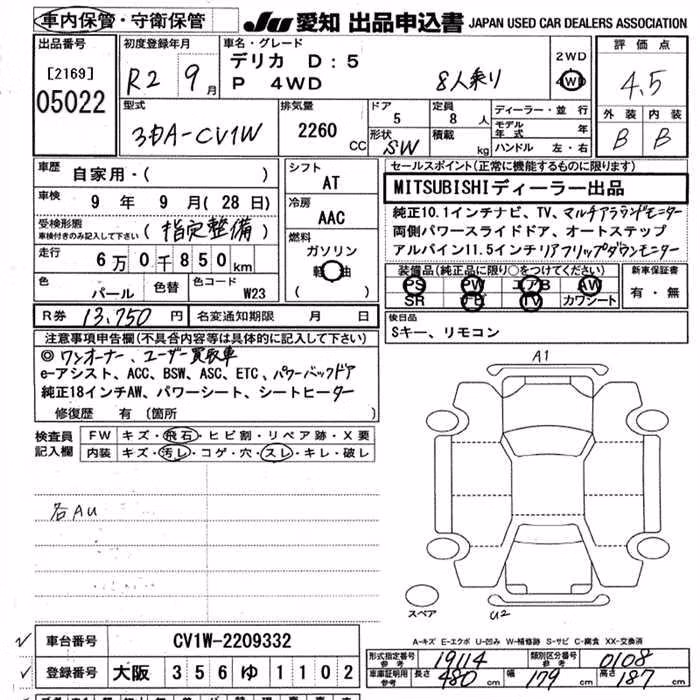 車内保管・守衛保管
JU 愛知 出品申込書 JAPAN USED CAR DEALERS ASSOCIATION
出品番号
[2169]
05022
初度登録年月
R2 9月
車名・グレード
デリカ D:5
P 4WD
8人乗り
2WD
4WD
評価点
4.5
外装 内装
B B
型式
3DA-CV1W
排気量
2260 CC
ドア
5
形状
SW
定員
8人
積載
kg
ディーラー・並行
モデル年式 年
ハンドル 左・右
車歴
自家用・( )
車検
9年 9月(28日)
受検形態
車検付きのみ記入して下さい
(指定整備)
走行
6万0千850km
色
パール
色替
色コード
W23
シフト
AT
冷房
AAC
燃料
ガソリン
軽油
( )
セールスポイント(正常に機能するものに限ります)
MITSUBISHIディーラー出品
純正10.1インチナビ、TV、マルチアラウンドモニター
両側パワースライドドア、オートステップ
アルパイン11.5インチリアフリップダウンモニター
装備品(純正品に限り○をつけてください)
PS PW エアB AW
SR ナビ TV カワシート
新車保証書
有・無
R券 13,750円
名変通知期限 月 日
後日品
Sキー、リモコン
注意事項申告欄(不具合内容等は具体的に記入して下さい)
◎ワンオーナー、ユーザー買取車
e-アシスト、ACC、BSW、ASC、ETC、パワーバックドア
純正18インチAW、パワーシート、シートヒーター
修復歴 有 (箇所
検査員記入欄
FW キズ・飛石・ヒビ割・リペア跡・X要
内装 キズ・汚レ・コゲ・穴・スレ・キレ・破レ
各AU
A1
U2
スペア
A-キズ E-エクボ U-凹み W-補修跡 S-サビ C-腐食 XX-交換済
車台番号 CV1W-2209332
登録番号 大阪 356 ゆ 1102
形式指定番号 参考 19114
類別区分番号 参考 0108
車庫証明用 参考 長さ 480 cm 幅 179 cm 高さ 187 cm